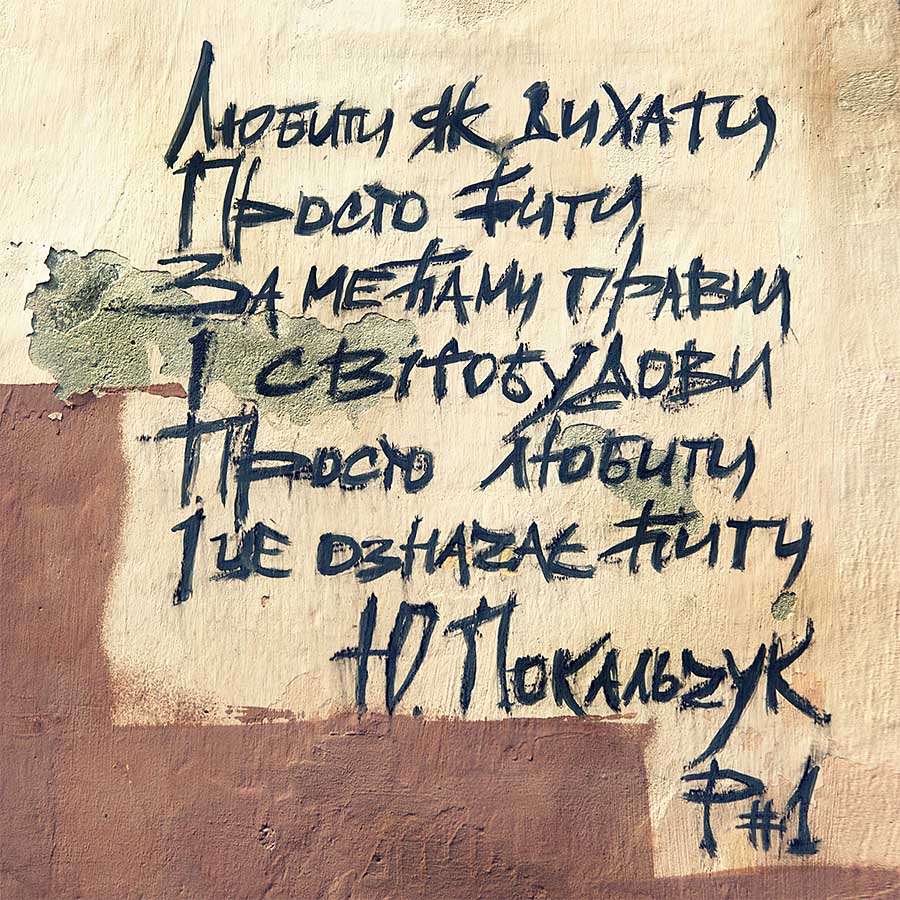 Любити як дихати
Просто жити
За межами правил
І світобудови
Просто любити
І це означає жити
Ю. Покальчук
Р#1